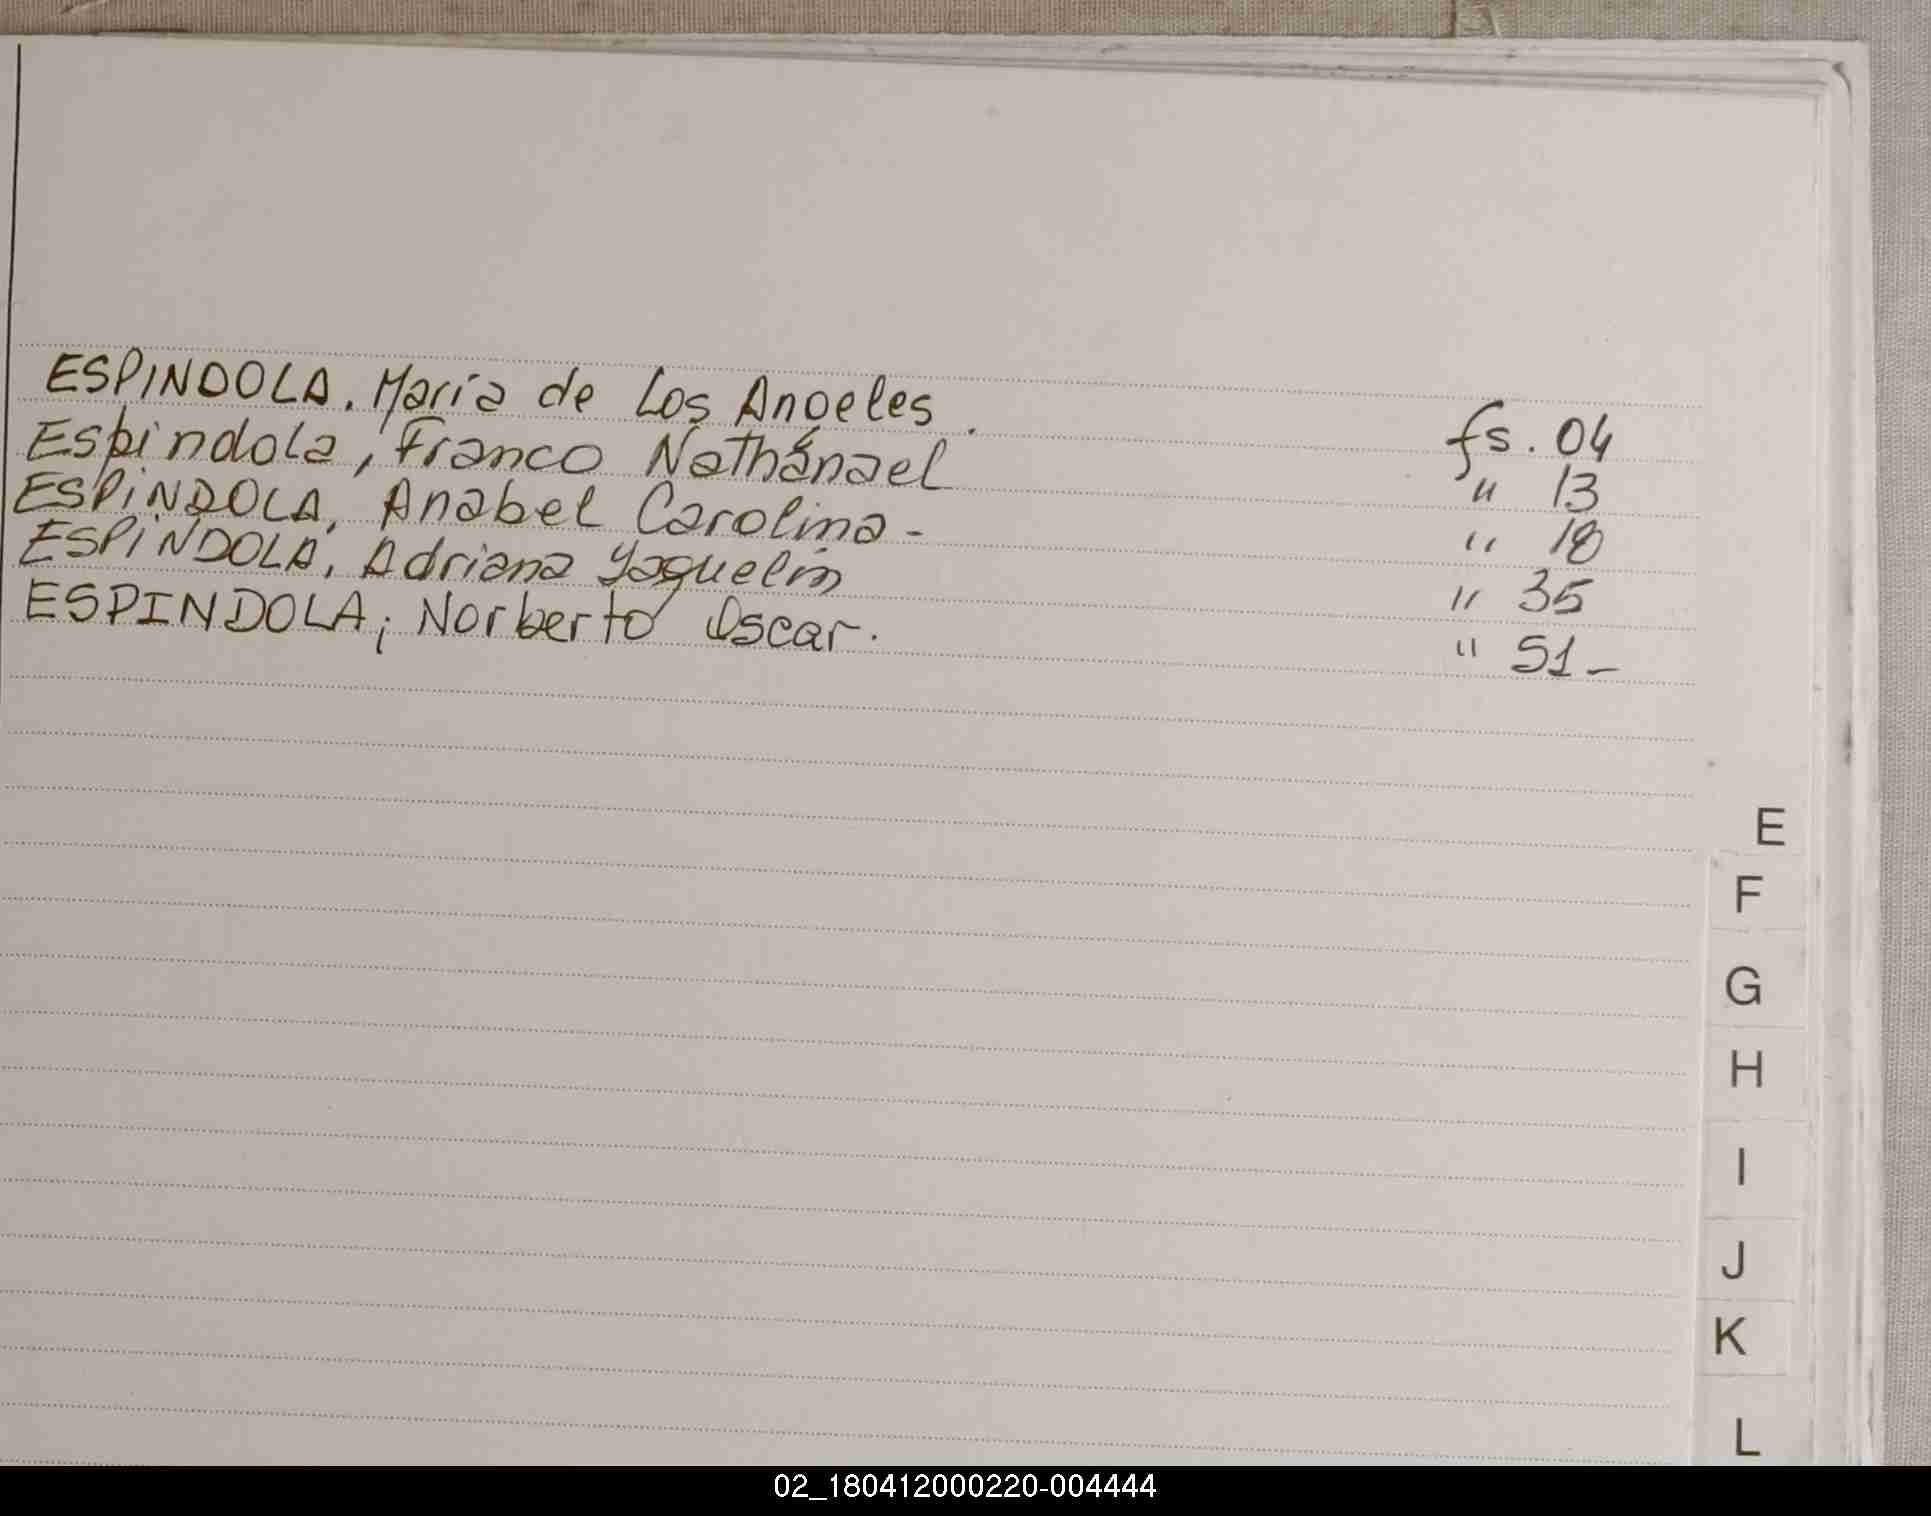 ESPINDOLA. María de Los Angeles. fs. 04
Espindola, Franco Nathánael " 13
ESPiNDOLA, Anabel Carolina- " 18
ESPiNDOLA, Adriana Yaquelin " 35
ESPINDOLA; Norberto Oscar. " 51-
E
F
G
H
I
J
K
L
02_180412000220-004444